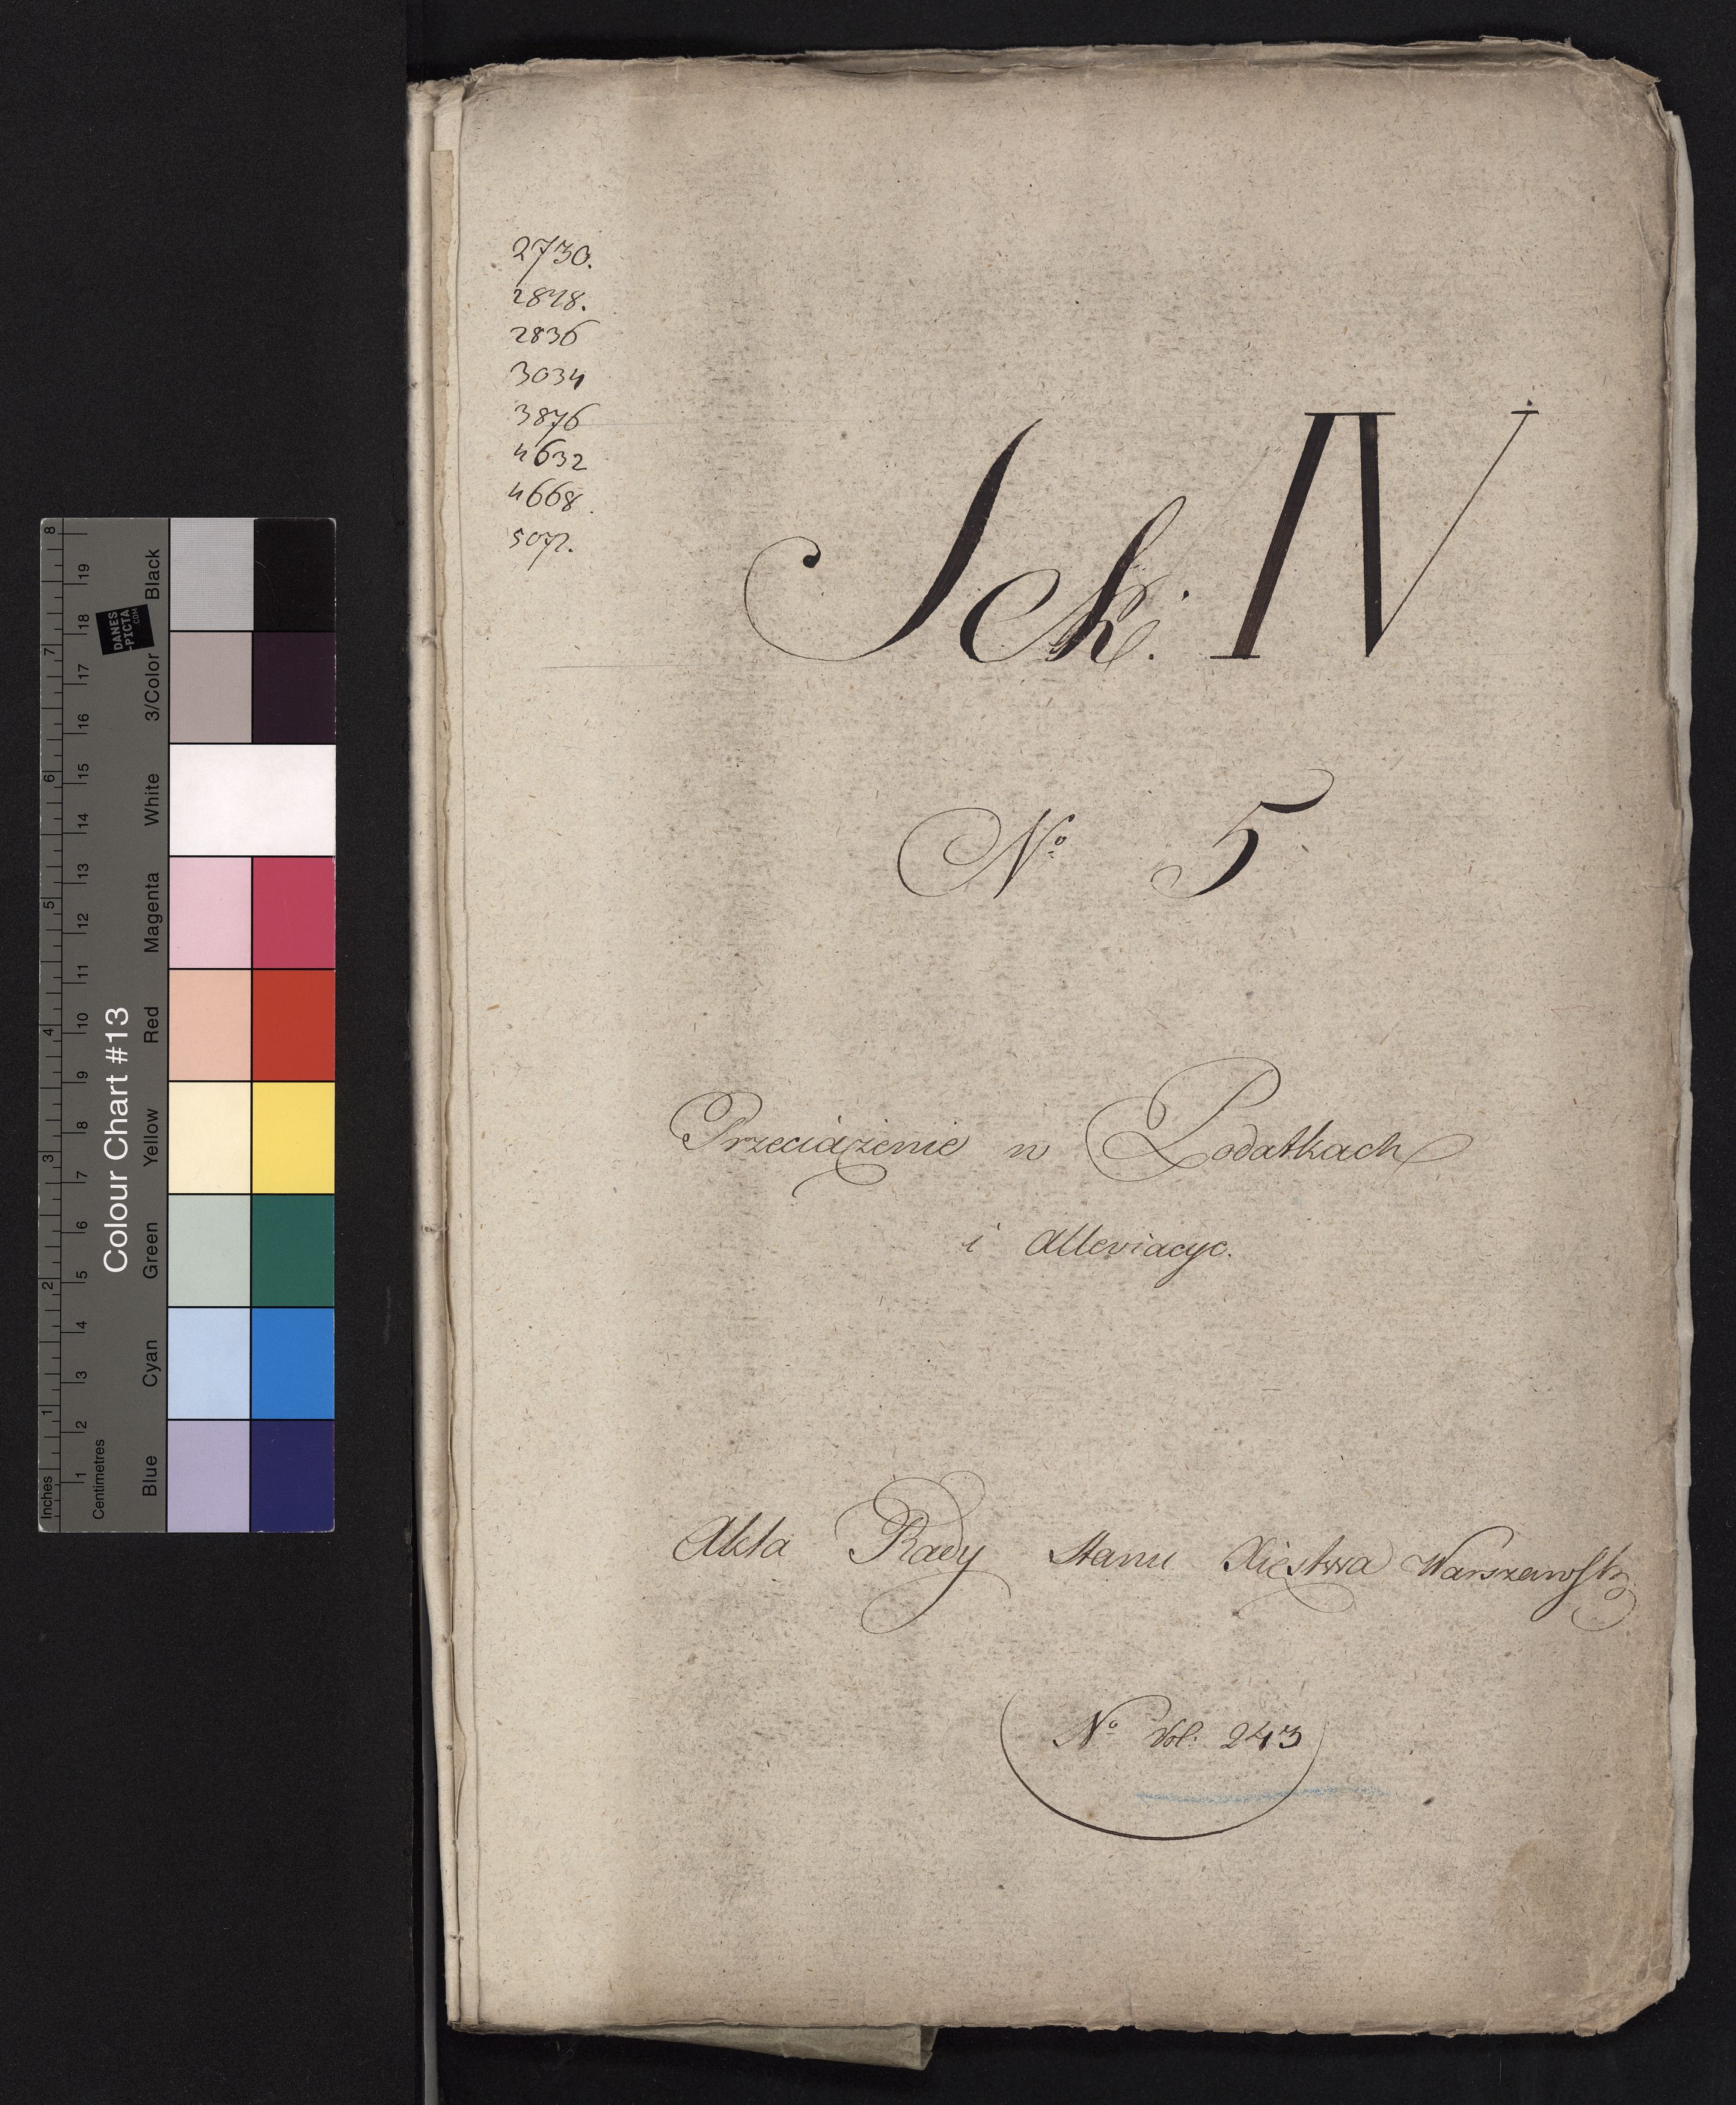 2730.
2828.
2836
3034
3876
4632
4668.
5072.
Sek. IV
No 5
Przeciążenie w Podatkach
i Alleviacye.
Akta Rady Stanu Xięstwa Warszawsk:
No Vol: 243
Colour Chart #13
Inches
Centimetres
1 2 3 4 5 6 7 8
1 2 3 4 5 6 7 8 9 10 11 12 13 14 15 16 17 18 19
Blue Cyan Green Yellow Red Magenta White 3/Color Black
DANES
-PICTA
.COM